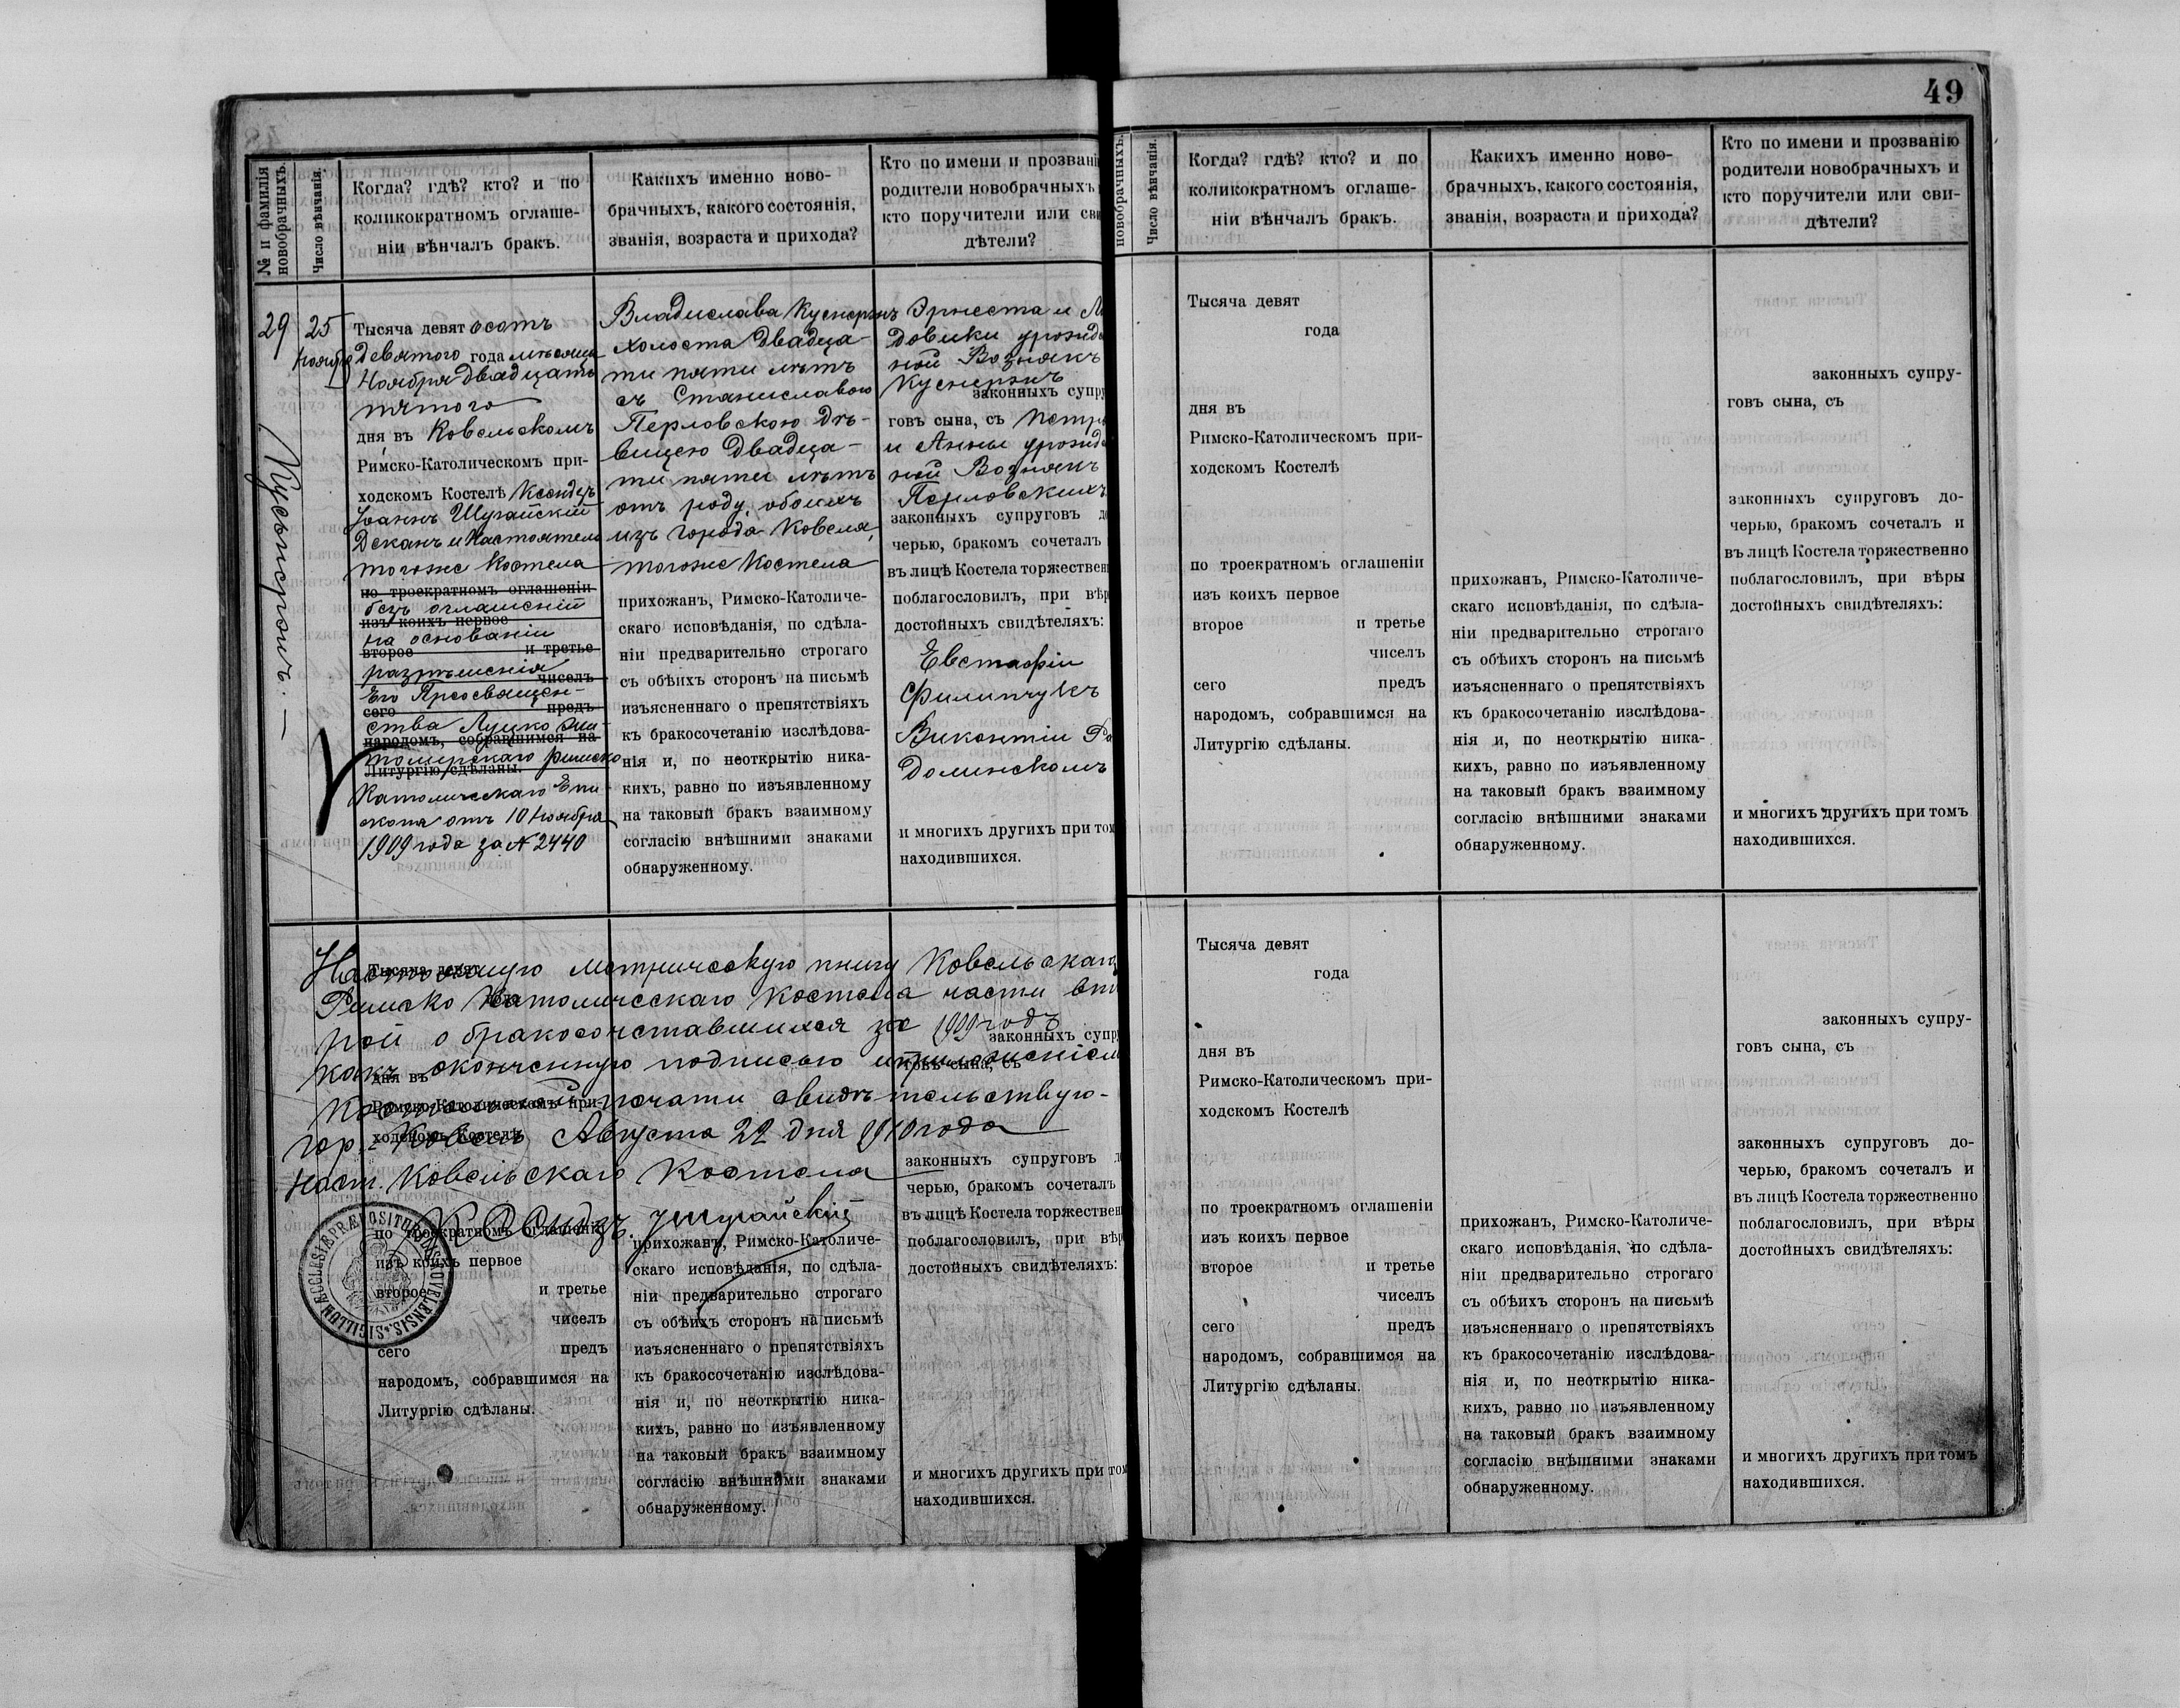 49
№ и фамилія новобрачныхъ.
Число вѣнчанія.
Когда? гдѣ? кто? и по
коликократномъ оглаше-
ніи вѣнчалъ бракъ.
Какихъ именно ново-
брачныхъ, какого состоянія,
званія, возраста и прихода?
Кто по имени и прозвані
родители новобрачныхъ
кто поручители или сви
дѣтели?
29
25
Ноября
Тысяча девятсотъ
девятого года мѣсяца
Ноября двадцать
пятого
дня въ Ковельскомъ
Римско-Католическомъ при-
ходскомъ Костелѣ Ксендзъ
Іоаннъ Шугайскій
Деканъ и Настоятель
тогоже Костела
по троекратномъ оглашеніи
безъ оглашеній
изъ коихъ первое
на основаніи
второе и третье
разрѣшенія
чиселъ
Его Преосвящен-
сего предъ
ства Луцко Жи-
народомъ, собравшимся на
томирскаго римско
Литургію сдѣланы.
Католическаго Епи
скопа отъ 10 Ноября
1909 года за № 2440
Владислава Куснерж
холоста двадца-
ти пяти лѣтъ
съ Станиславою
Перловскою дѣ-
вицею двадца-
ти пяти лѣтъ
отъ роду, обоихъ
изъ города Ковеля,
тогоже Костела
прихожанъ, Римско-Католиче-
скаго исповѣданія, по сдѣла-
ніи предварительно строгаго
съ обѣихъ сторонъ на письмѣ
изъясненнаго о препятствіяхъ
къ бракосочетанію изслѣдова-
нія и, по неоткрытію ника-
кихъ, равно по изъявленному
на таковый бракъ взаимному
согласію внѣшними знаками
обнаруженному.
Эрнеста и
довики урожде
ной Вознякъ
законныхъ супру
говъ сына, съ Петра
и Анны урожде
ной Вознякъ
Перловскихъ
законныхъ супруговъ до
черью, бракомъ сочеталъ
въ лицѣ Костела торжествен
поблагословилъ, при вѣр
достойныхъ свидѣтеляхъ:
Евстафіи
Филипчукъ
Викентіи
Долинскомъ
и многихъ другихъ при том
находившихся.
Настоящую метрическую книгу Ковельскаго
Римско Католическаго Костела части вто
рой о бракосочетавшихся за 1909 годъ
какъ оконченную подписью и приложеніемъ
печати свидѣтельствую-
гор. Ковель Августа 22 дня 1910 года
Наст. Ковельскаго Костела
Ксендзъ Шугайскій
Тысяча девят
дня въ
Римско-Католическомъ при-
ходскомъ Костелѣ
по троекратномъ оглашеніи
изъ коихъ первое
второе и третье
чиселъ
сего предъ
народомъ, собравшимся на
Литургію сдѣланы.
прихожанъ, Римско-Католиче-
скаго исповѣданія, по сдѣла-
ніи предварительно строгаго
съ обѣихъ сторонъ на письмѣ
изъясненнаго о препятствіяхъ
къ бракосочетанію изслѣдова-
нія и, по неоткрытію ника-
кихъ, равно по изъявленному
на таковый бракъ взаимному
согласію внѣшними знаками
обнаруженному.
законныхъ супру
говъ сына, съ
законныхъ супруговъ д
черью, бракомъ сочеталъ
въ лицѣ Костела торжествен
поблагословилъ, при вѣр
достойныхъ свидѣтеляхъ:
и многихъ другихъ при том
находившихся.
новобрачныхъ.
Число вѣнчанія.
Когда? гдѣ? кто? и по
коликократномъ оглаше-
ніи вѣнчалъ бракъ.
Какихъ именно ново-
брачныхъ, какого состоянія,
званія, возраста и прихода?
Кто по имени и прозванію
родители новобрачныхъ и
кто поручители или сви-
дѣтели?
Тысяча девят
года
дня въ
Римско-Католическомъ при-
ходскомъ Костелѣ
по троекратномъ оглашеніи
изъ коихъ первое
второе и третье
чиселъ
сего предъ
народомъ, собравшимся на
Литургію сдѣланы.
прихожанъ, Римско-Католиче-
скаго исповѣданія, по сдѣла-
ніи предварительно строгаго
съ обѣихъ сторонъ на письмѣ
изъясненнаго о препятствіяхъ
къ бракосочетанію изслѣдова-
нія и, по неоткрытію ника-
кихъ, равно по изъявленному
на таковый бракъ взаимному
согласію внѣшними знаками
обнаруженному.
законныхъ супру-
говъ сына, съ
законныхъ супруговъ до-
черью, бракомъ сочеталъ и
въ лицѣ Костела торжественно
поблагословилъ, при вѣры
достойныхъ свидѣтеляхъ:
и многихъ другихъ при томъ
находившихся.
Тысяча девят
года
дня въ
Римско-Католическомъ при-
ходскомъ Костелѣ
по троекратномъ оглашеніи
изъ коихъ первое
второе и третье
чиселъ
сего предъ
народомъ, собравшимся на
Литургію сдѣланы.
прихожанъ, Римско-Католиче-
скаго исповѣданія, по сдѣла-
ніи предварительно строгаго
съ обѣихъ сторонъ на письмѣ
изъясненнаго о препятствіяхъ
къ бракосочетанію изслѣдова-
нія и, по неоткрытію ника-
кихъ, равно по изъявленному
на таковый бракъ взаимному
согласію внѣшними знаками
обнаруженному.
законныхъ супру-
говъ сына, съ
законныхъ супруговъ до-
черью, бракомъ сочеталъ и
въ лицѣ Костела торжественно
поблагословилъ, при вѣры
достойныхъ свидѣтеляхъ:
и многихъ другихъ при томъ
находившихся.